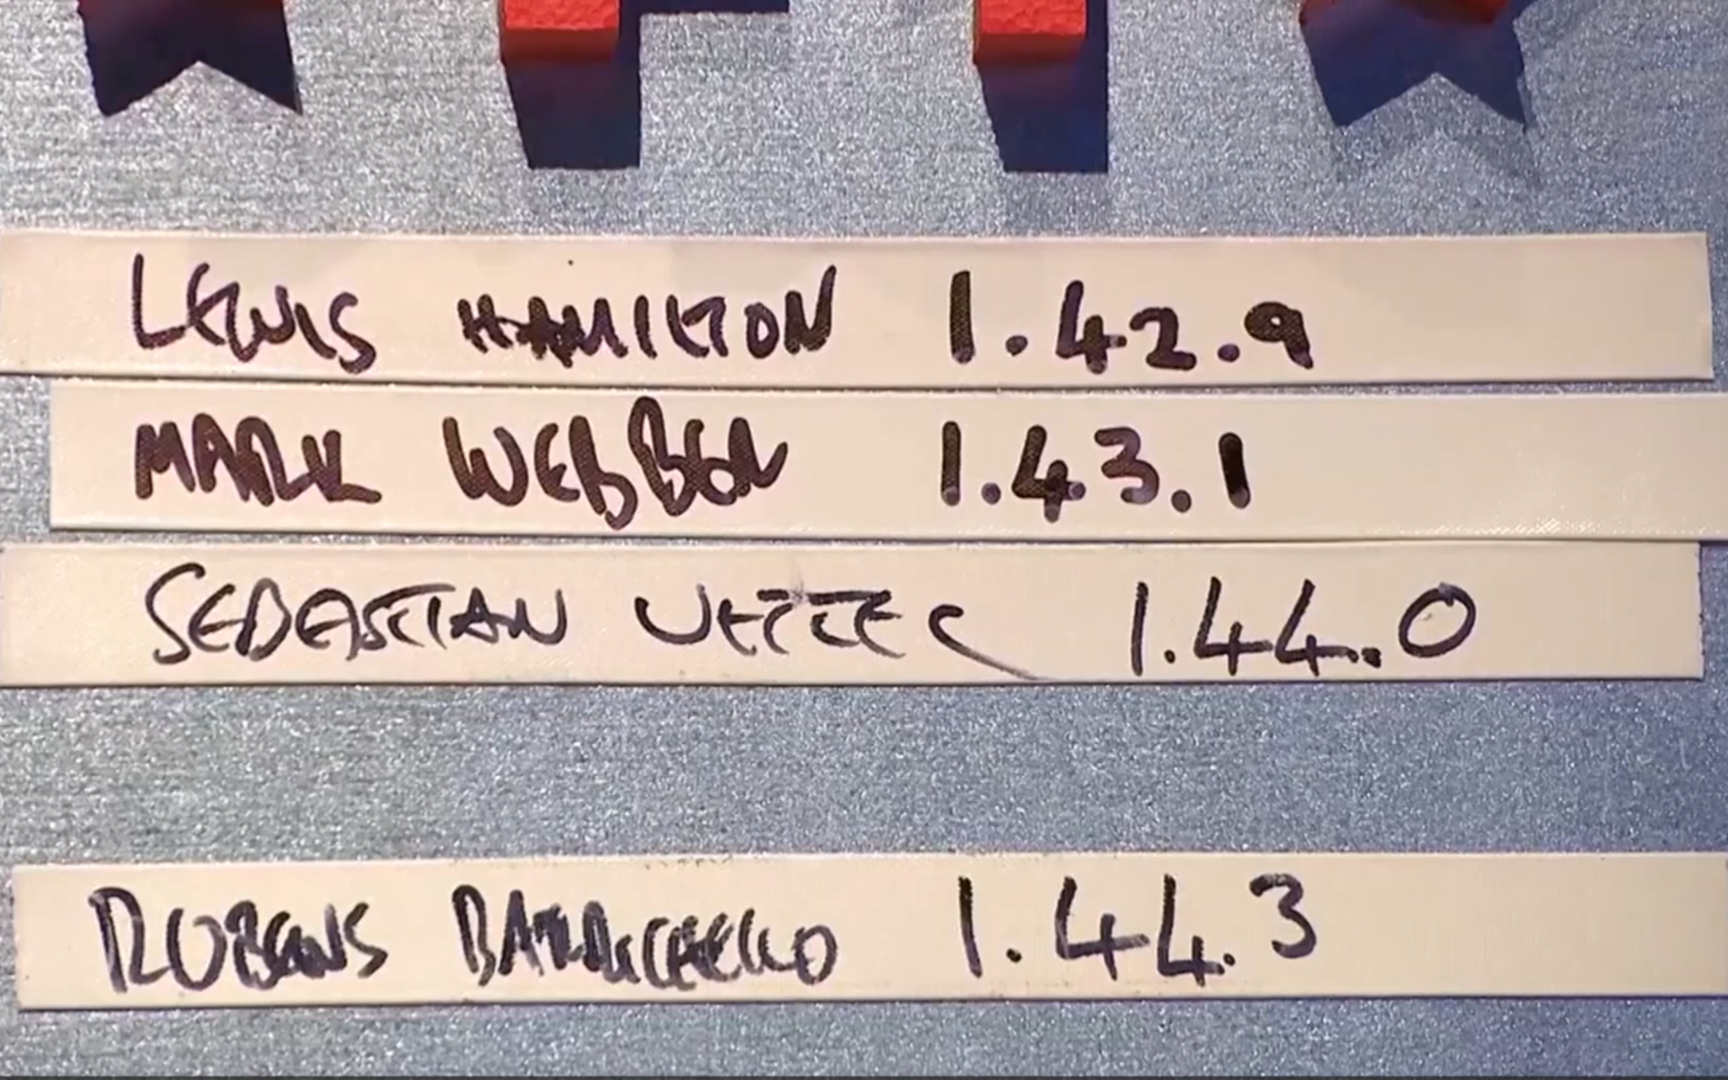 LEWIS HAMILTON 1.42.9
MARK WEBBER 1.43.1
SEBASTIAN VETTEL 1.44.0
RUBENS BARRICHELLO 1.44.3